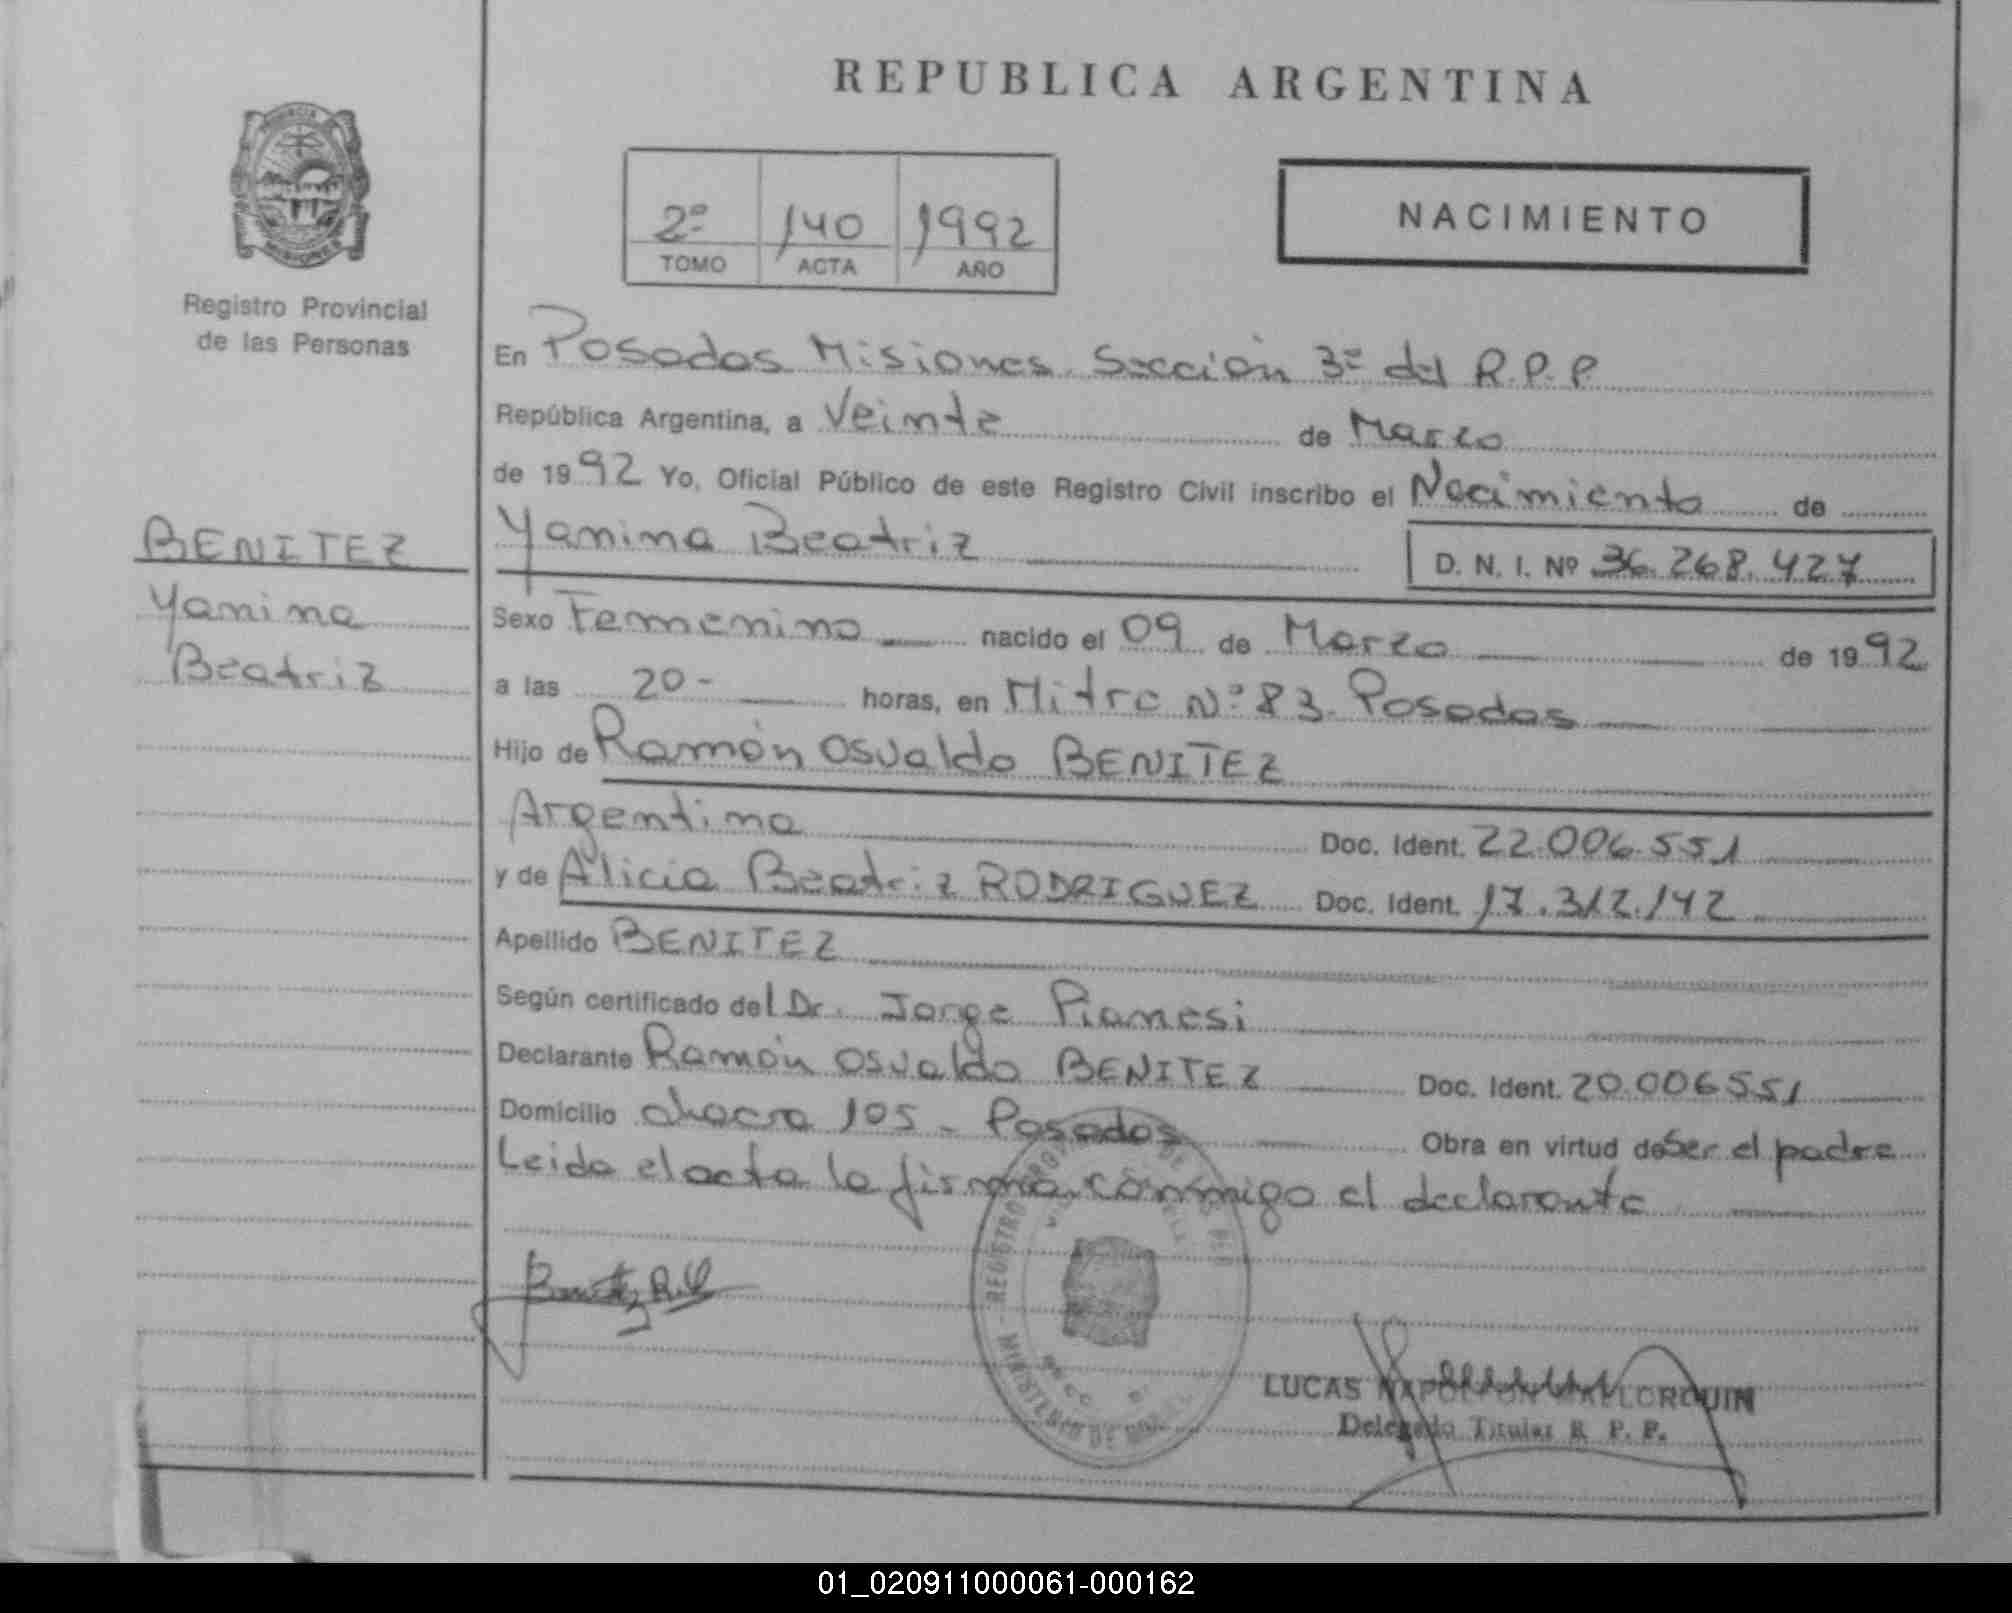 REPUBLICA ARGENTINA
2º 140 1992
TOMO ACTA AÑO
NACIMIENTO
Registro Provincial
de las Personas
BENITEZ
Yanina
Beatriz
En Posadas Misiones. Sección 3ª del R.P.P.
República Argentina, a Veinte de Marzo
de 1992 Yo, Oficial Público de este Registro Civil inscribo el Nacimiento de
Yanina Beatriz D. N. I. Nº 36.268.427
Sexo Femenino nacido el 09 de Marzo de 1992
a las 20- horas, en Mitre Nº 83. Posadas
Hijo de Ramón Osvaldo BENITEZ
Argentina Doc. Ident. 22.006.551
y de Alicia Beatriz RODRIGUEZ Doc. Ident. 17.312.142
Apellido BENITEZ
Según certificado del Dr. Jorge Pianesi
Declarante Ramón Osvaldo BENITEZ Doc. Ident. 20.006551
Domicilio chacra 105 - Posadas Obra en virtud de Ser el padre
Leida el acta la firma conmigo el declarante
Benitez R.O
LUCAS NAPOLEON MALLORQUIN
Delegado Titular R. P. P.
REGISTRO PROV DE LAS PER
MINISTERIO DE
01_020911000061-000162